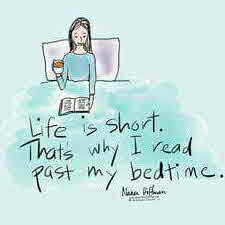 Life is short.
That's why I read
past my bedtime.